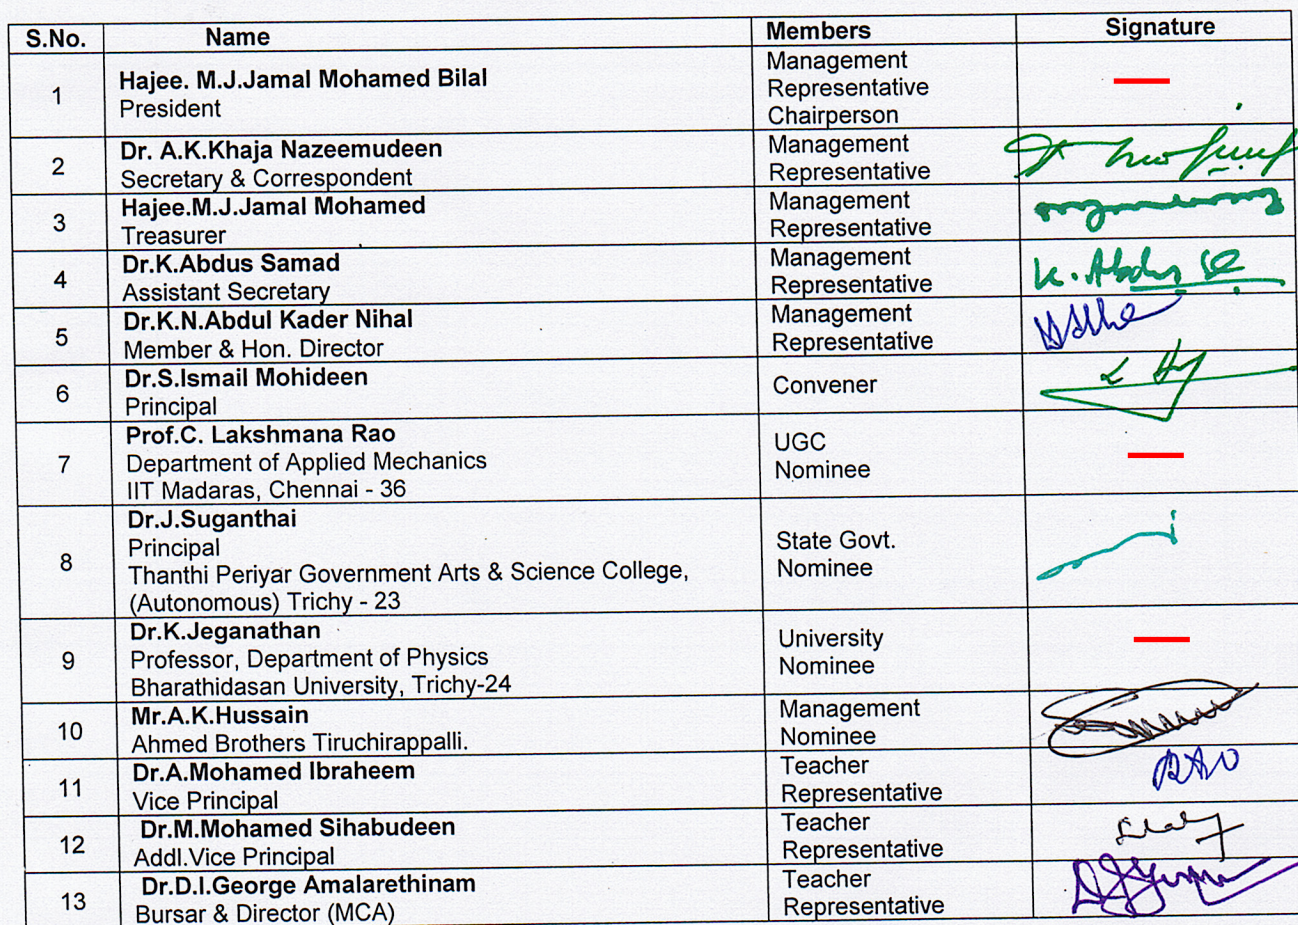 S.No. Name Members Signature
1 Hajee. M.J.Jamal Mohamed Bilal
President
Management
Representative
Chairperson
2 Dr. A.K.Khaja Nazeemudeen
Secretary & Correspondent
Management
Representative
3 Hajee.M.J.Jamal Mohamed
Treasurer
Management
Representative
4 Dr.K.Abdus Samad
Assistant Secretary
Management
Representative
K. Abdus
5 Dr.K.N.Abdul Kader Nihal
Member & Hon. Director
Management
Representative
6 Dr.S.Ismail Mohideen
Principal
Convener
7 Prof.C. Lakshmana Rao
Department of Applied Mechanics
IIT Madaras, Chennai - 36
UGC
Nominee
8 Dr.J.Suganthai
Principal
Thanthi Periyar Government Arts & Science College,
(Autonomous) Trichy - 23
State Govt.
Nominee
9 Dr.K.Jeganathan
Professor, Department of Physics
Bharathidasan University, Trichy-24
University
Nominee
10 Mr.A.K.Hussain
Ahmed Brothers Tiruchirappalli.
Management
Nominee
11 Dr.A.Mohamed Ibraheem
Vice Principal
Teacher
Representative
12 Dr.M.Mohamed Sihabudeen
Addl.Vice Principal
Teacher
Representative
13 Dr.D.I.George Amalarethinam
Bursar & Director (MCA)
Teacher
Representative